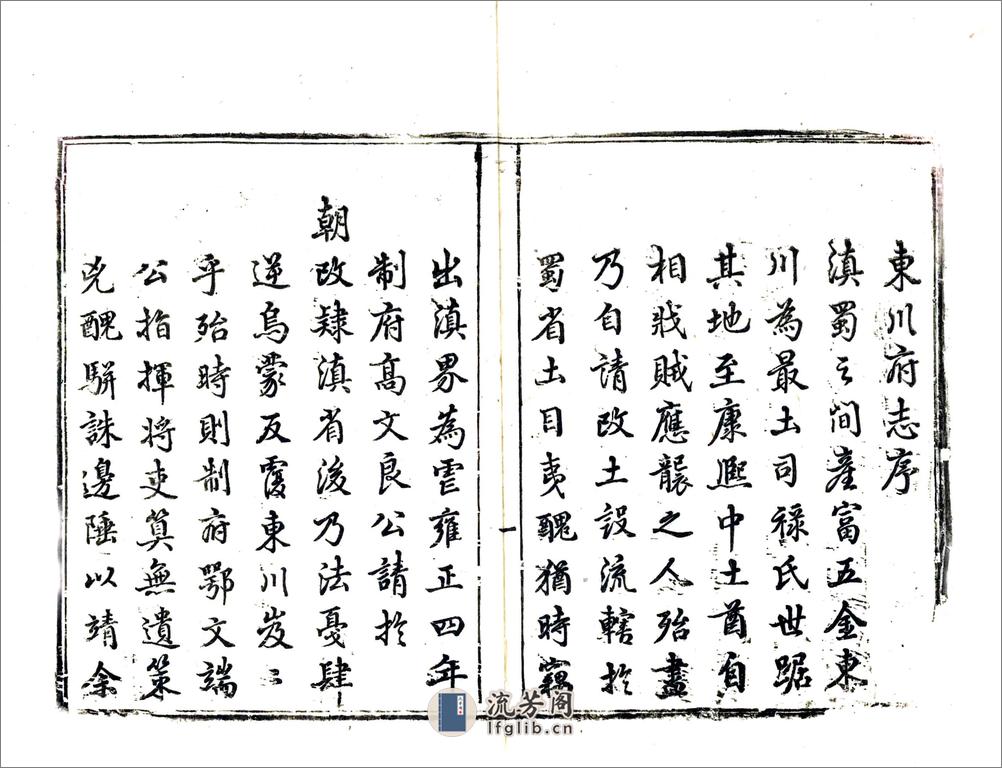 東川府志序
滇蜀之間產富五金東
川為最土司祿氏世踞
其地至康熙中土酋自
相戕賊應襲之人殆盡
乃自請改土設流轄於
蜀省土目夷醜猶時竊
一
出滇界為雍正四年
制府高文良公請於
朝改隸滇省後乃法憂肆
逆烏蒙反覆東川岌〻
乎殆時則制府鄂文端
公指揮將吏算無遺策
兇醜駢誅邊陲以靖余
流芳阁
lfglib.cn